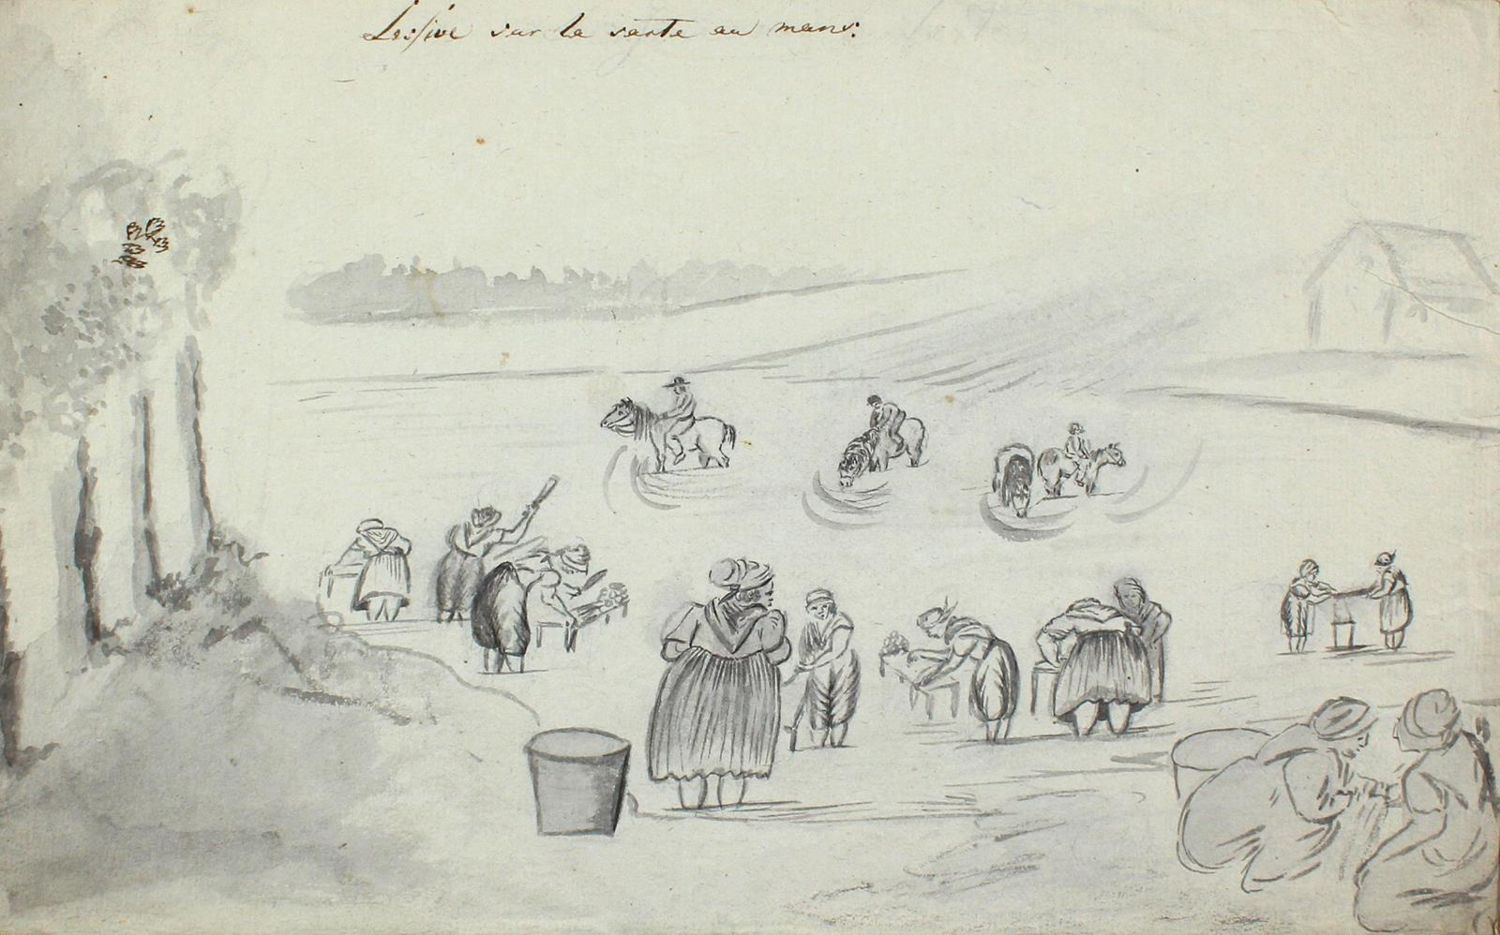 Lessive sur la sarte au mans: